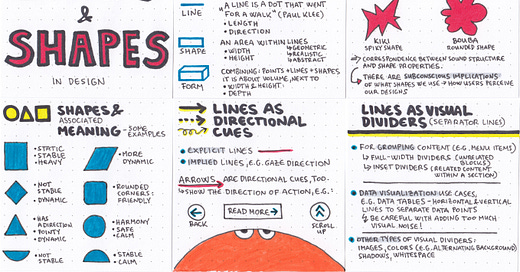 &
SHAPES
IN DESIGN
LINE
"A LINE IS A DOT THAT WENT
FOR A WALK." (PAUL KLEE)
• LENGTH
• DIRECTION
SHAPE
AN AREA WITHIN LINES
• WIDTH
• HEIGHT
↳ GEOMETRIC
↳ REALISTIC
↳ ABSTRACT
FORM
COMBINING: POINTS + LINES + SHAPES
IT IS ABOUT VOLUME, NEXT TO
• WIDTH & HEIGHT
• DEPTH
KIKI
SPIKY SHAPE
BOUBA
ROUNDED SHAPE
→ CORRESPONDENCE BETWEEN SOUND STRUCTURE
AND SHAPE PROPERTIES.
↳ THERE ARE SUBCONSCIOUS IMPLICATIONS
OF WHAT SHAPES WE USE → HOW USERS PERCEIVE
OUR DESIGNS
SHAPES &
ASSOCIATED
MEANING - SOME
EXAMPLES
• STATIC
• STABLE
• HEAVY
• MORE
DYNAMIC
• NOT
STABLE
• DYNAMIC
• ROUNDED
CORNERS:
FRIENDLY
• HAS
A DIRECTION
• POINTY
• DYNAMIC
• HARMONY
• SAFE
• CALM
• NOT STABLE
• STABLE
• CALM
LINES AS
DIRECTIONAL
CUES
• EXPLICIT LINES
• IMPLIED LINES, E.G. GAZE DIRECTION
ARROWS ARE DIRECTIONAL CUES, TOO.
↳ SHOW THE DIRECTION OF ACTION, E.G.:
←
BACK
READ MORE →
SCROLL
UP
LINES AS VISUAL
DIVIDERS (SEPARATOR LINES)
• FOR GROUPING CONTENT (E.G. MENU ITEMS)
↳ FULL-WIDTH DIVIDERS (UNRELATED
BLOCKS)
↳ INSET DIVIDERS (RELATED CONTENT
WITHIN A SECTION)
• DATA VISUALIZATION USE CASES,
E.G. DATA TABLES - HORIZONTAL & VERTICAL
LINES TO SEPARATE DATA POINTS
↳ BE CAREFUL WITH ADDING TOO MUCH
VISUAL NOISE!
• OTHER TYPES OF VISUAL DIVIDERS:
IMAGES, COLORS (E.G. ALTERNATING BACKGROUND)
SHADOWS, WHITESPACE